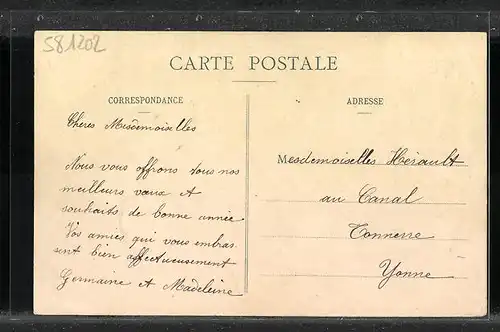 581202
CARTE POSTALE
CORRESPONDANCE
Chères Mesdemoiselles
Nous vous offrons tous nos
meilleurs vœux et
souhaits de bonne année
Vos amies qui vous embras
sent bien affectueusement
Germaine et Madeleine
ADRESSE
Mesdemoiselles Hérault
au Canal
Tonnerre
Yonne